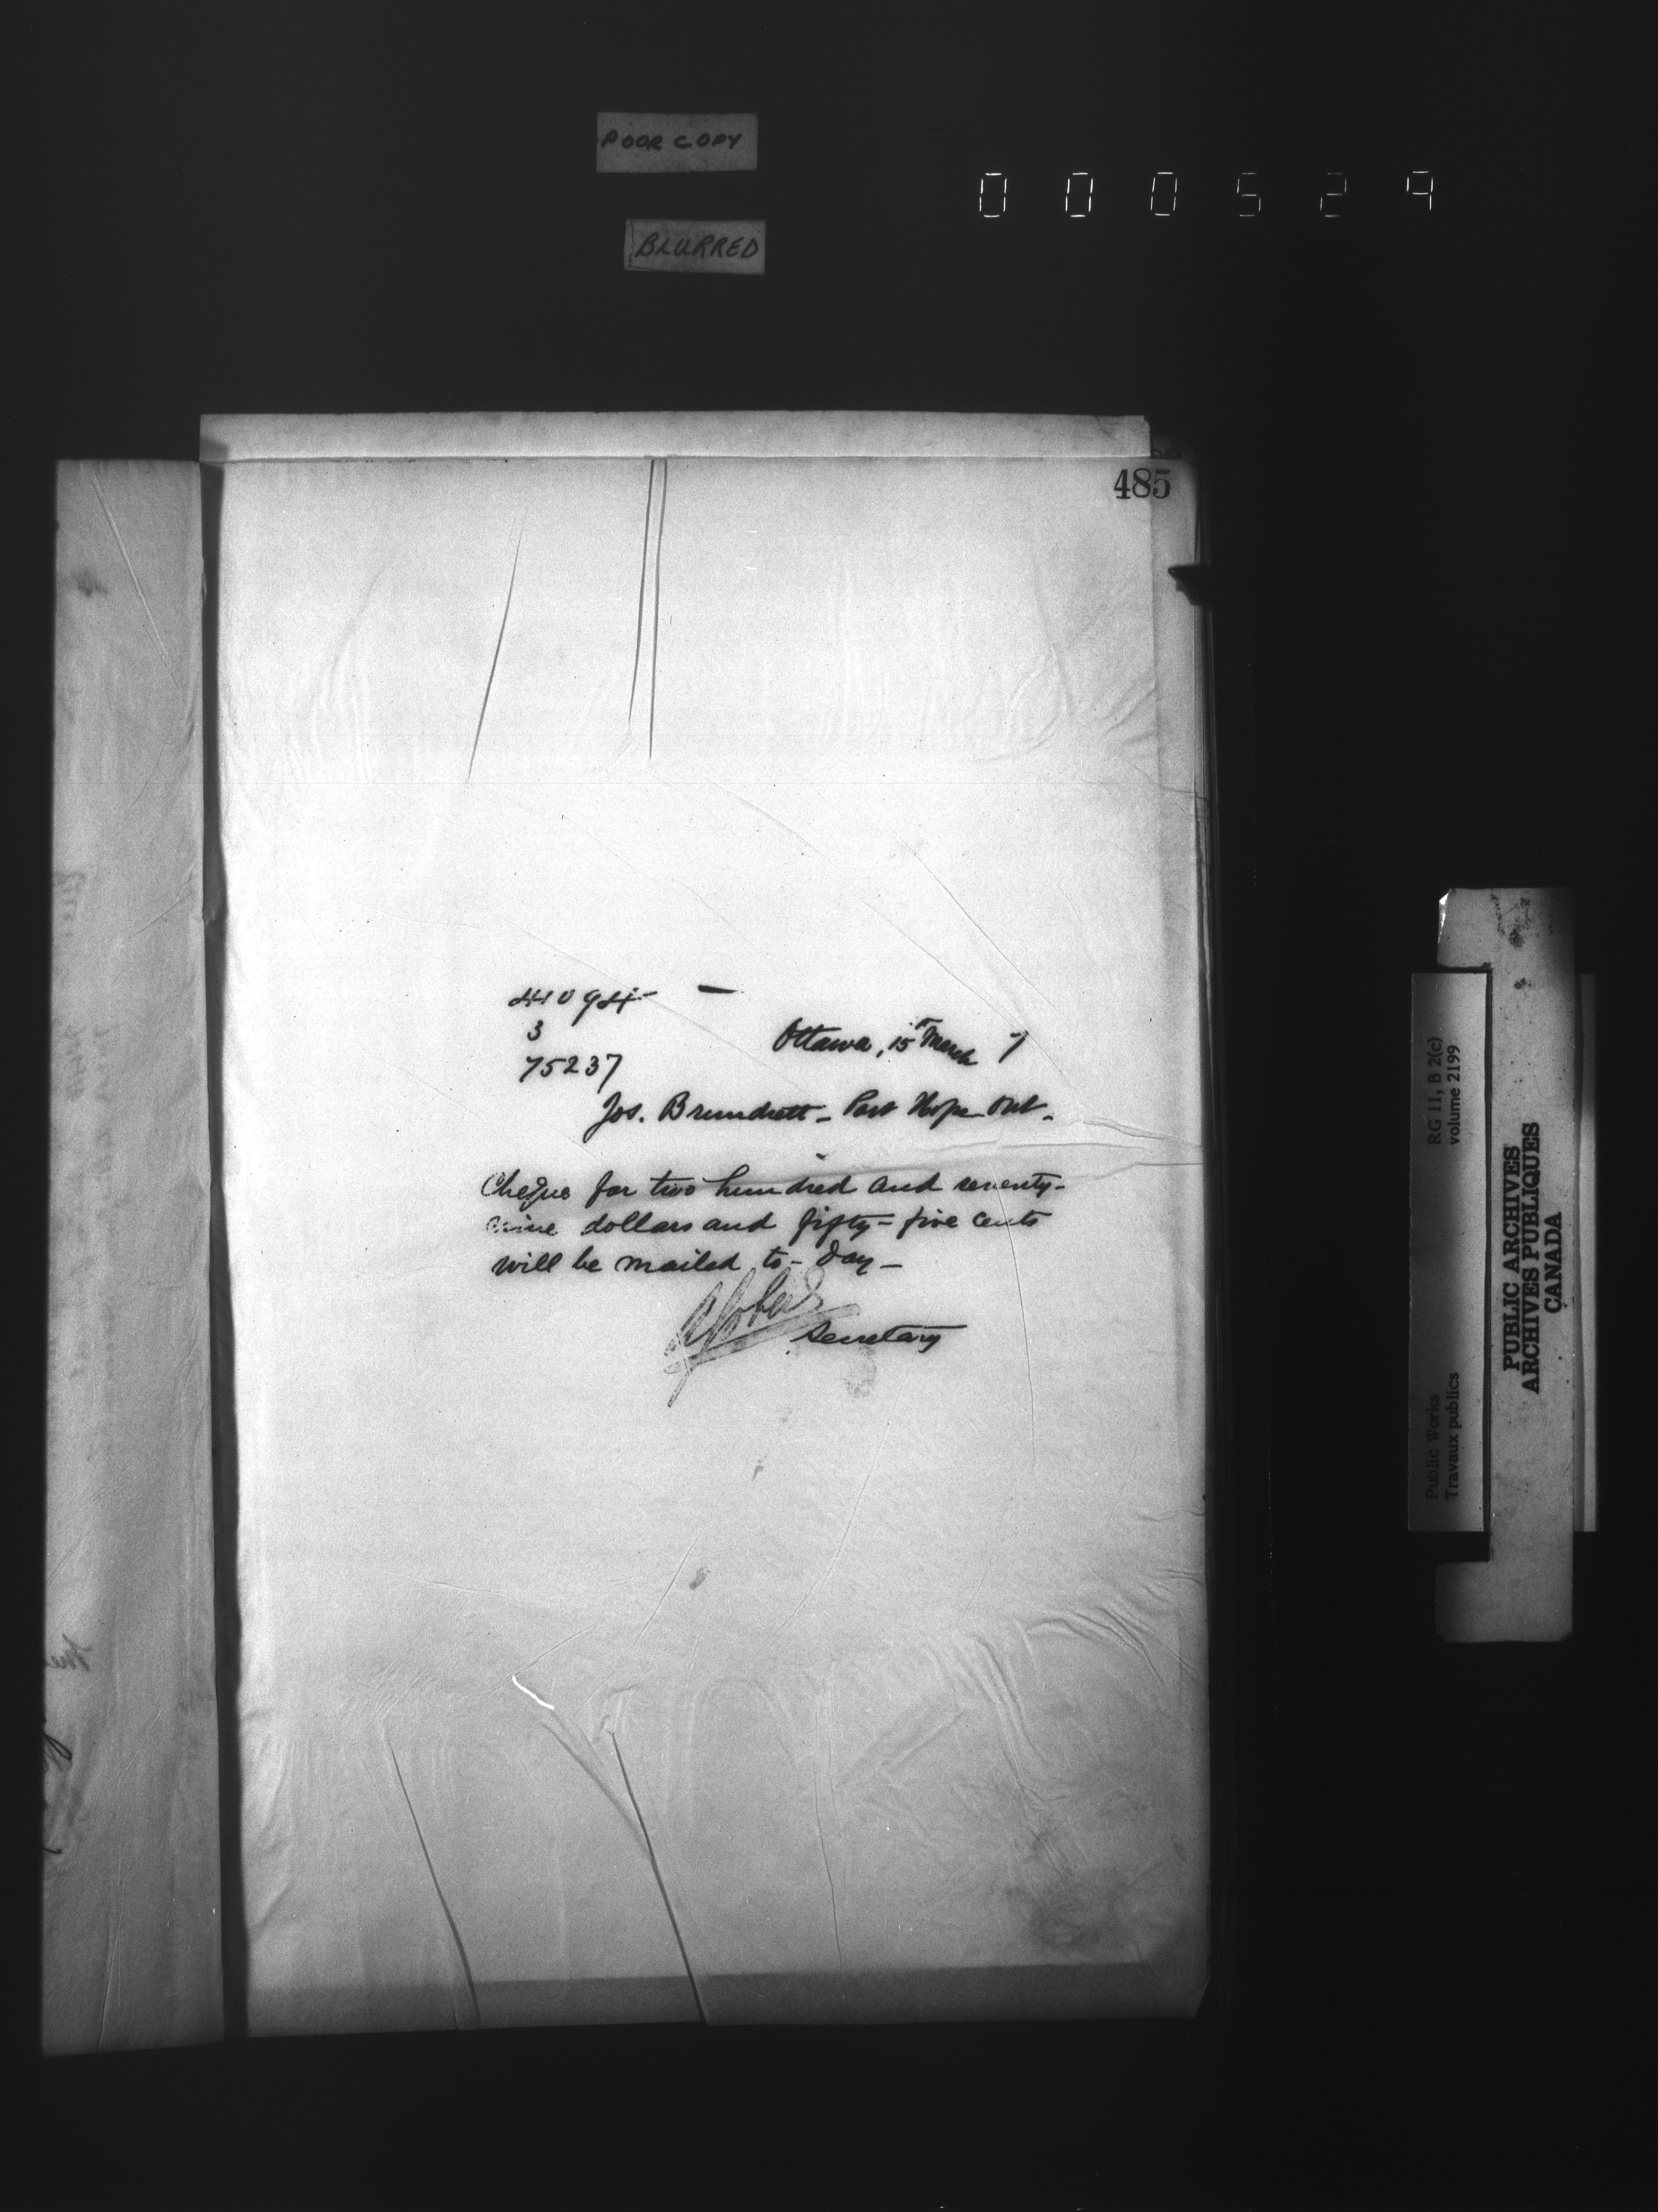 POOR COPY
BLURRED
000529
485
75237
3
Ottawa, 15th March 7
Jos. Brundrett - Port Hope Ont.
Cheque for two hundred and seventy-
nine dollars and fifty-five cents
will be mailed to-day -
Secretary
Public Works
Travaux publics
RG 11, B 2(c)
volume 2199
PUBLIC ARCHIVES
ARCHIVES PUBLIQUES
CANADA